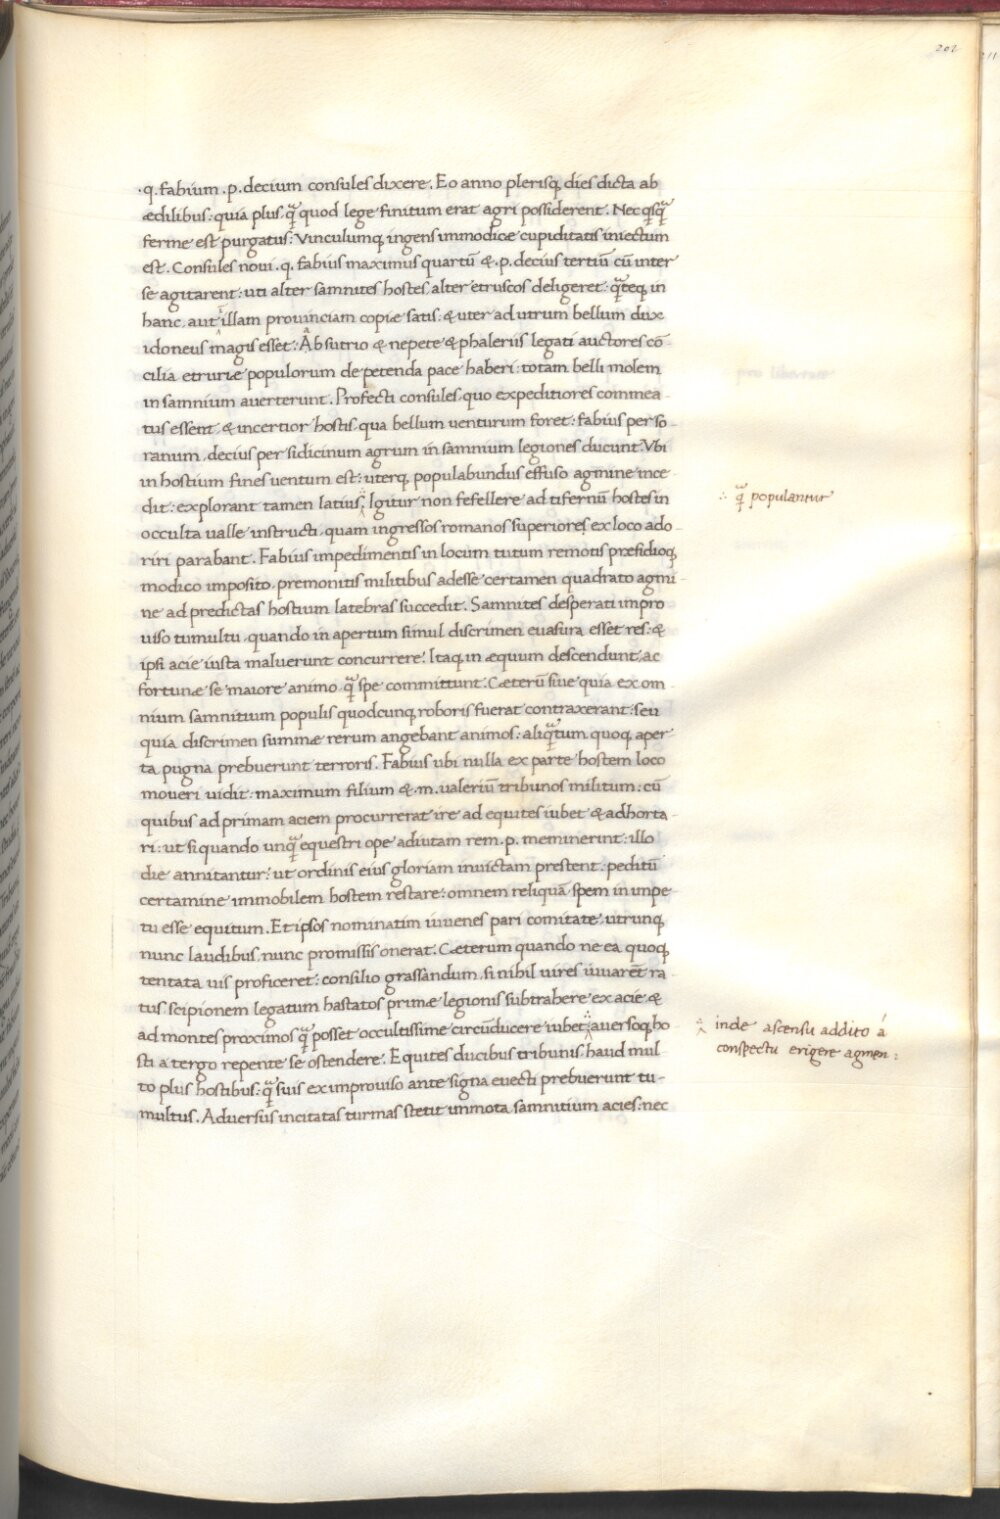 202
.q. fabium .p. decium consules dixere. Eo anno plerisq; dies dicta ab
ædilibus: quia plus q̃ quod lege finitum erat agri possiderent. Nec qsq̃
ferme est purgatus: Vinculumq; ingens immodicæ cupiditatis iniectum
est. Consules noui .q. fabius maximus quartũ & .p. decius tertiũ cũ inter
se agitarent: uti alter samnites hostes, alter etruscos deligeret: q̃teq; in
hanc, aut illam prouinciam copiæ satis: & uter ad utrum bellum dux
idoneus magis esset: Ab sutrio & nepete & phaleriis legati auctores cõ
cilia etruriæ populorum de petenda pace haberi: totam belli molem
in samnium auerterunt. Profecti consules, quo expeditiores commea
tus essent & incertior hostis, qua bellum uenturum foret: fabius per so
ranum, decius per sidicinum agrum in samnium legiones ducunt. Vbi
in hostium fines uentum est: uterq; populabundus effuso agmine ince
dit: explorant tamen latius: Igitur non fefellere ad tifernũ hostes in
∴ q̃ populantur
occulta ualle instructi, quam ingressos romanos superiores ex loco ado
riri parabant. Fabius impedimentis in locum tutum remotis præsidioq;
modico imposito, premonitis militibus adesse certamen quadrato agmi
ne ad predictas hostium latebras succedit. Samnites desperati impro
uiso tumultu, quando in apertum simul discrimen euasura esset res: &
ipsi acie iusta maluerunt concurrere. Itaq; in æquum descendunt, ac
fortunæ se maiore animo q̃ spe committunt. Cæterũ siue quia ex om
nium samnitium populis quodcunq; roboris fuerat contraxerant: seu
quia discrimen summæ rerum angebant animos: aliq̃tum quoq; aper
ta pugna prebuerunt terroris. Fabius ubi nulla ex parte hostem loco
moueri uidit: maximum filium & .m. ualeriũ tribunos militum: cũ
quibus ad primam aciem procurrerat ire ad equites iubet & adhorta
ri: ut si quando unq̃ equestri ope adiutam rem .p. meminerint: illo
die annitantur: ut ordinis eius gloriam inuictam prestent: peditũ
certamine immobilem hostem restare: omnem reliquã spem in impe
tu esse equitum. Et ipsos nominatim iuuenes pari comitate: utrunq;
nunc laudibus, nunc promissis onerat. Cæterum quando ne ea quoq;
tentata uis proficeret: consilio grassandum, si nihil uires iuuarẽt ra
tus scipionem legatum hastatos primæ legionis subtrahere ex acie &
ad montes proximos q̃ posset occultissime circũducere iubet: auersoq; ho
inde ascensu addito á
conspectu erigere agmen:
sti a tergo repente se ostendere. Equites ducibus tribunis haud mul
to plus hostibus: q̃ suis ex improuiso ante signa euecti prebuerunt tu-
multus. Aduersus incitatas turmas stetit inmota samnitium acies: nec